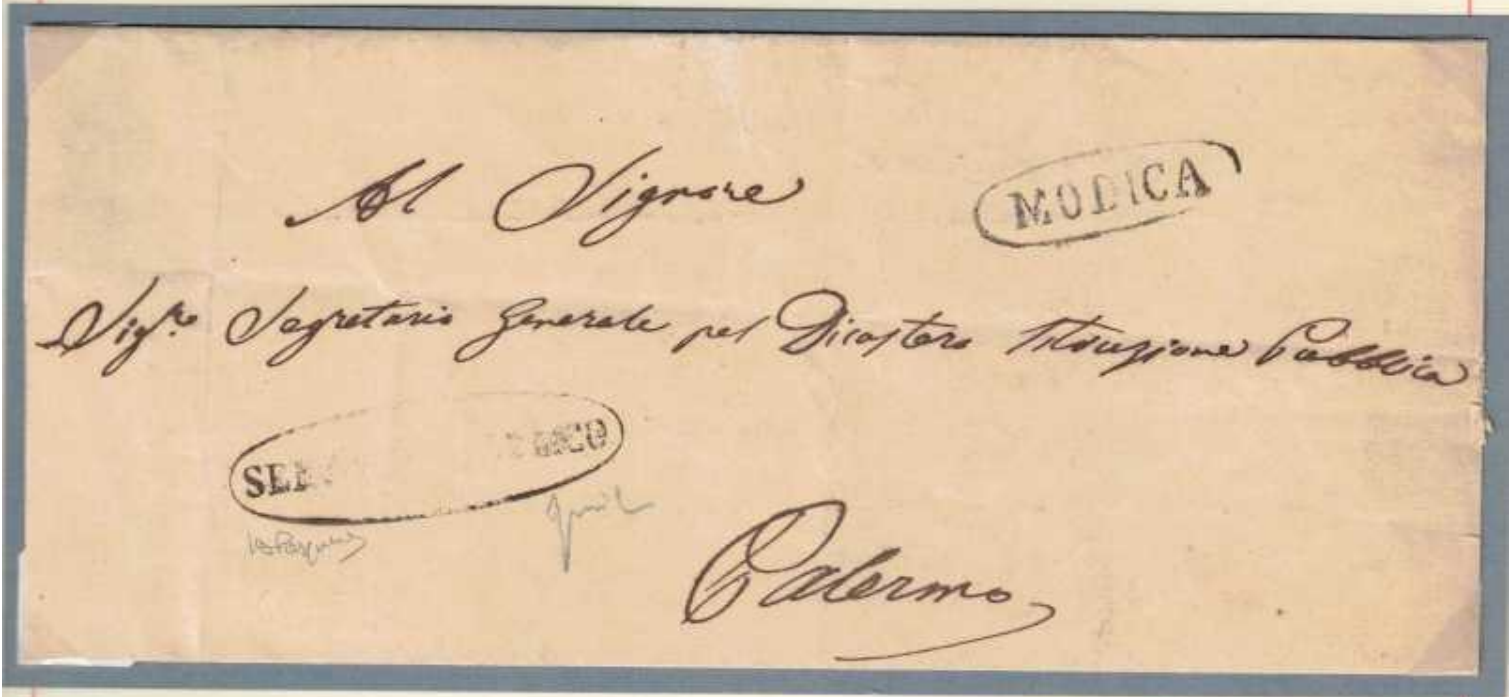 Al Signore
MODICA
Sig.re Segretario Generale pel Dicastero Istruzione Pubblica
Palermo